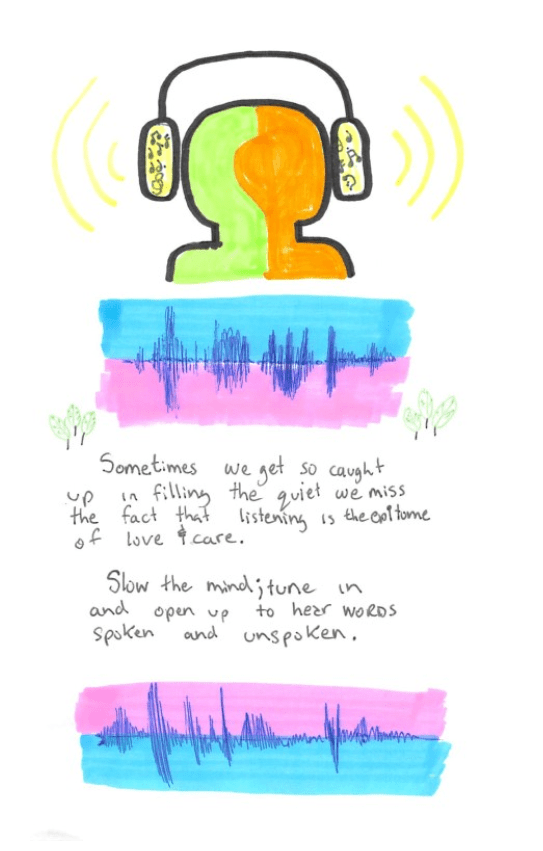 Sometimes we get so caught
up in filling the quiet we miss
the fact that listening is the epitome
of love & care.
Slow the mind; tune in
and open up to hear words
spoken and unspoken.